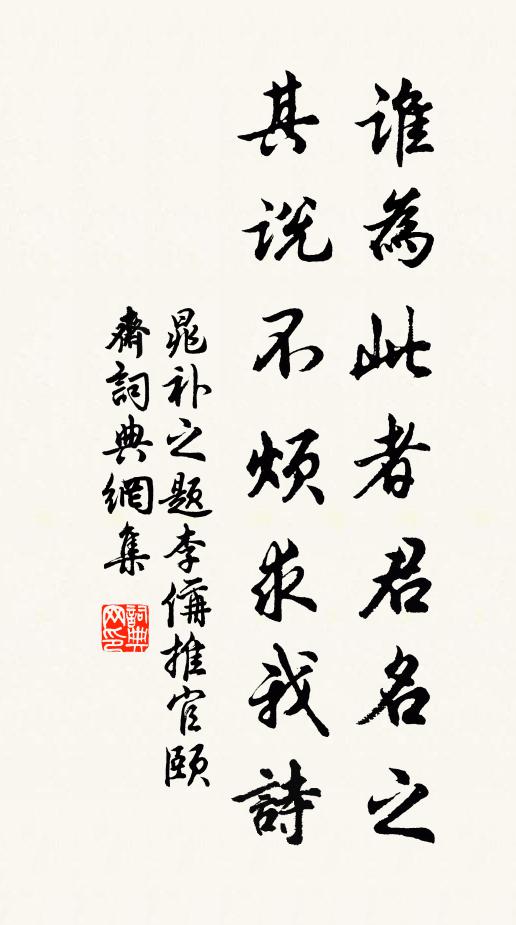 誰為此者君名之
其説不煩求我詩
晁补之题李偁推官颐
齋詞典網集
詞典網印